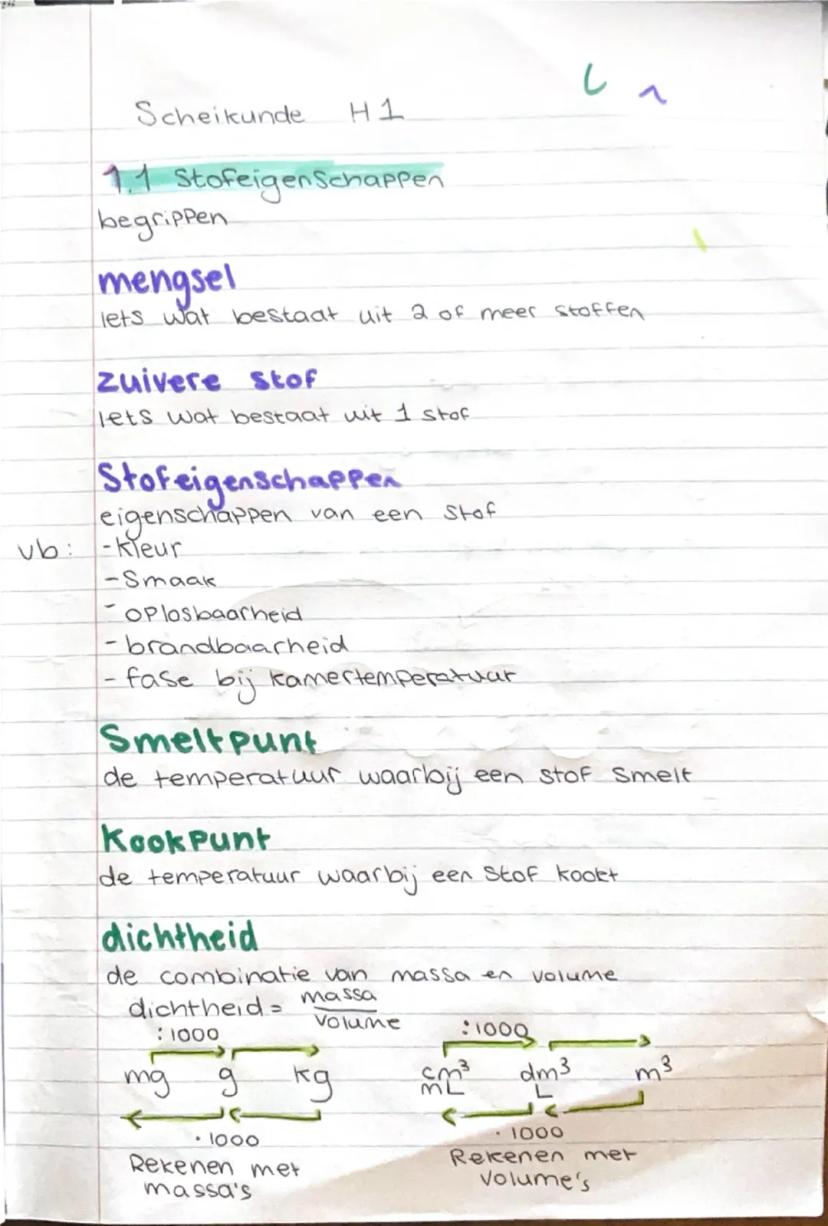 Scheikunde H1
1.1 Stofeigenschappen
begrippen
mengsel
Iets wat bestaat uit 2 of meer stoffen
zuivere stof
Iets wat bestaat uit 1 stof
Stofeigenschappen
eigenschappen van een stof
vb: - kleur
- Smaak
- oplosbaarheid
- brandbaarheid
- fase bij kamertemperatuur
Smeltpunt
de temperatuur waarbij een stof smelt
Kookpunt
de temperatuur waarbij een stof kookt
dichtheid
de combinatie van massa en volume
dichtheid = massa
volume
:1000 :1000
mg g kg cm³ dm³ m³
mL L
· 1000 · 1000
Rekenen met Rekenen met
massa's volume's